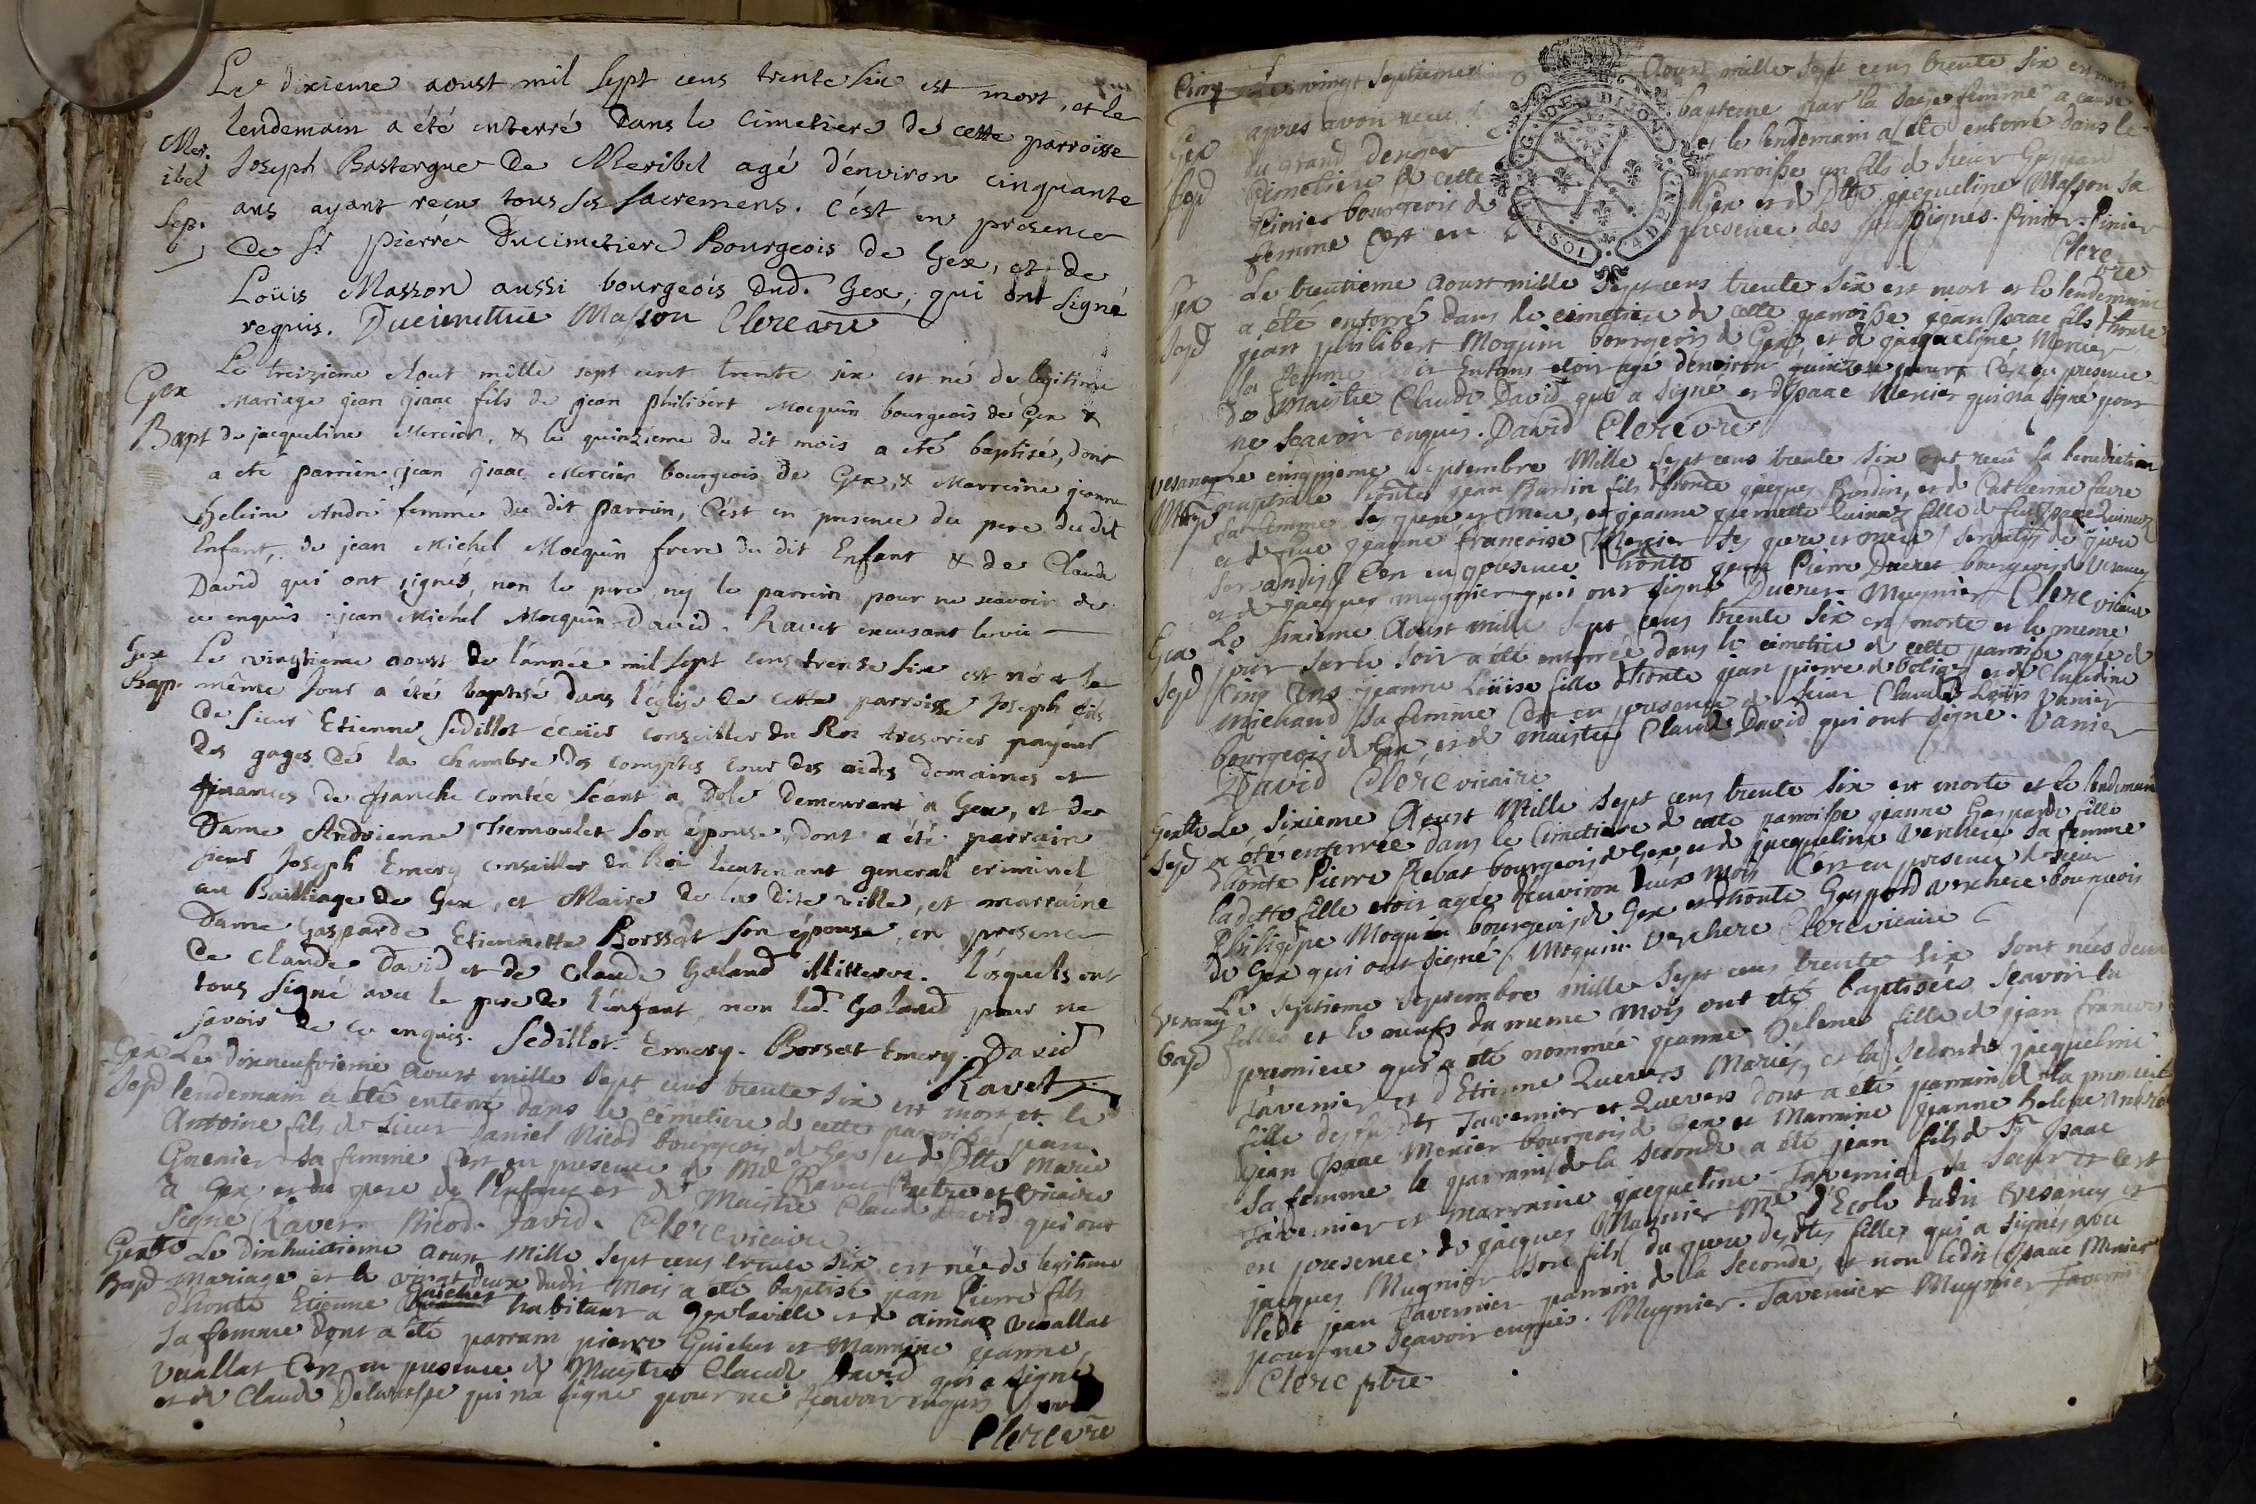 Le dixieme aoust mil sept cens trente six est mort, et le
lendemain a été enterré Dans le Cimetiere de cette parroisse
Mer.
ibel
Joseph Bastergue De Meribel agé d'environ cinquante
ans ayant reçu tous ses sacremens. C'est en presence
Sep.
De Sr. pierre Ducimetiere Bourgeois de Gex, et de
Loüis Masson aussi bourgeois dud. Gex, qui ont signé
requis. Ducimettiere Masson Clerc vre
Le treizieme Aout mille sept cent trente six est né de legitime
Gex
Mariage jean jsaac fils de jean philibert Mocquin bourgeois de Gex &
Bapt
de jacqueline Mercier, & le quinzieme du dit mois a eté baptisé, dont
a eté parrein jean jsaac Mercier bourgeois de Gex, & Marreine jeanne
heleine André femme du dit parrein, C'est en presence du pere du dit
Enfant, de jean Michel Mocquin frere du dit Enfant & de Claude
David qui ont signés, non le pere, nÿ le parrein pour ne scavoir de
ce enquis. jean Michel Mocquin David. Ravet
Gex
Le vingtieme aoust de l'année mil sept cens trente six est né & le
Bap.
même jour a été baptisé dans l'église de cette parroisse Joseph fils
de sieur Etienne Sedillot écuïer conseiller du Roi tresorier payeur
des gages de la chambre des comptes cour des aides domaines et
finances de franche comtée séant a Dole demeurant a Gex, et de
Dame Andrienne Tremoulet son épouse, dont a été parrain
sieur Joseph Emery conseiller du Roi lieutenant general criminel
au Bailliage de Gex, et Maire de la dite ville, et marraine
Dame Gasparde Etiennette Borssat son épouse, en presence
de Claude David et de Claude Goland. Lesquels ont
tous signé avec le pere de l'enfant, non led. Goland pour ne
savoir de ce enquis. Sedillot. Emery. Borssat Emery. David
Ravet
Gex
Le dixneufvieme aoust mille sept cens trente six est mort et le
Sepd
lendemain a été enterré dans le cimetiere de cette parroisse jean
Antoine fils de sieur Daniel Nicod bourgeois de Gex et de Dlle Marie
Grenier sa femme C'est en presence de Mr Ravet Pretre et vicaire
a Gex et du pere de l'Enfant et de Maistre Claude David qui ont
signé Ravet. Nicod. David. Clerc vicaire
Le dixhuitieme aoust Mille sept cens trente six est né de legitime
Bapd
mariage et le vingt deux dudit mois a eté baptisé jean Pierre fils
d'honte Etienne Guichet habitant a Gex la ville et de aimée Vuallat
sa femme dont a été parrain pierre Guichet et Marraine jeanne
Vuallat C'est en presence de Maistre Claude David qui a signé
et de Claude qui na signé pour ne sçavoir enquis
Clerc vre
Cinq
Le vingt septieme Aoust mille sept cens trente six est mort
Gex
apres avoir recu baptême par la sage femme a cause
Sepd
du grand denger et le lendemain a été enterré dans le
Cimetiere de cette parroisse un fils de sieur Gaspard
Pinier bourgeois de Gex et de Dlle jacqueline Masson sa
femme C'est en presence des soussignés. Pinier. Pinier
Clerc
vre
Gex
Le trentieme Aoust mille sept cens trente six est mort et le lendemain
Sepd
a été enterré dans le cimetiere de cette parroisse jean Isaac fils d'honte
jean philibert Moquin bourgeois de Gex et de jacqueline Mercier
sa femme Enfans etoit agé denviron quinze jours C'est en presence
de Maistre Claude David qui a signé et d'Isaac Mercier qui na signé pour
ne sçavoir enquis. David Clerc vre
Le cinquieme Septembre Mille sept cens trente six ont recu la benediction
nuptiale honte jean Burdin fils d'honte jacques Burdin, et de Catherine favre
sa femme ses pere et mere, et jeanne pernette Quinaz fille de feu Quinaz
et de feue jeanne francoise Mercier ses pere et mere
C'est en presence d'honte jean Pierre Ducret bourgeois de Vesancy
et de jacques mugnier qui ont signé Ducret Mugnier Clerc vicaire
Gex
Le sixieme Aoust mille sept cens trente six est morte et le meme
Sepd
jour sur le soir a été enterrée dans le cimetiere de cette parroisse agée de
cinq Ans jeanne Loüise fille d'honte jean pierre et de Claudine
Michaud sa femme C'est en presence de sieur Claude Loüis Vanier
bourgeois de Gex et de Maistre Claude David qui ont signé. Vanier
David Clerc vicaire
Le sixieme Aoust Mille sept cens trente six est morte et le lendemain
Sepd
a été enterrée dans le Cimetiere de cette parroisse jeanne Gasparde fille
d'honte Pierre Rebat bourgeois de Gex et de jacqueline Verchere sa femme
ladette fille etoit agée denviron deux mois C'est en presence de sieur
Philippe Moquin bourgeois de Gex et d'honte Gaspard verchere bourgeois
de Gex qui ont signé Moquin. Verchere Clerc vicaire
Vesancy
Le septieme Septembre mille sept cens trente six sont nées deux
Bapd
filles et le neufs du meme mois ont été baptisées sçavoir la
premiere qui a été nommée jeanne Helene fille de jean francois
Tavernier et d'Etienne Quevers Mariés, et la seconde jacqueline
fille desdts Tavernier et Quevers dont a eté parrain de la premiere
jean Isaac Mercier bourgeois de Gex et Marraine jeanne helene André
sa femme le parrain de la seconde a été jean fils de Sr Isaac
Tavernier et marraine jacqueline Tavernier sa soeur et C'est
en presence de jacques Mugnier Me d'Ecole dudit Vesancy et
jacques Mugnier son fils du pere desdtes filles qui a signés avec
ledt jean Tavernier parrain de la seconde, et non ledit Isaac Mercier
pour ne sçavoir enquis. Mugnier. Tavernier Mugnier Tavernier
Clerc ptre